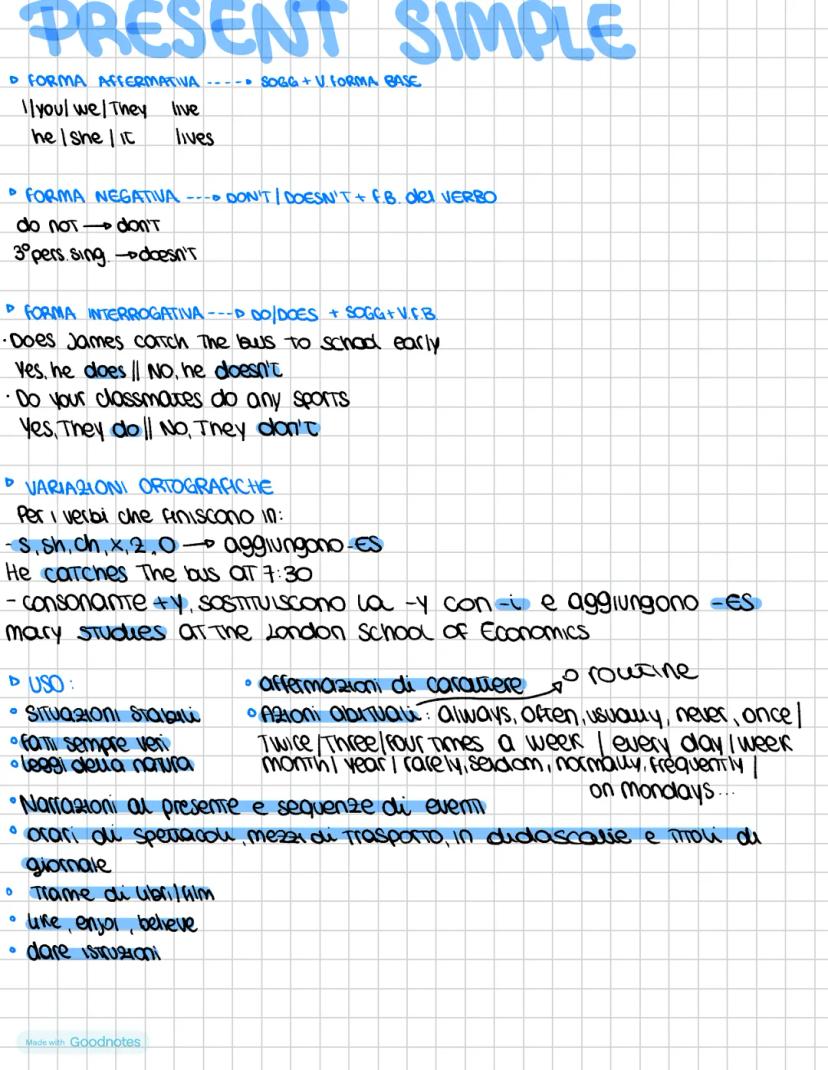 PRESENT SIMPLE
▷ FORMA AFFERMATIVA ----▷ SOGG + V. FORMA BASE
I/you/we/They live
he/she/it lives
▷ FORMA NEGATIVA ---▷ DON'T/DOESN'T + F.B. del VERBO
do not → don't
3° pers. sing. → doesn't
▷ FORMA INTERROGATIVA ---▷ DO/DOES + SOGG + V.F.B.
·Does James catch the bus to school early
Yes, he does || No, he doesn't
·Do your classmates do any sports
Yes, They do || No, They don't
▷ VARIAZIONI ORTOGRAFICHE
Per i verbi che finiscono in:
-s, sh, ch, x, z, o → aggiungono -ES
He catches the bus at 7:30
- consonante +y, sostituiscono la -y con -i e aggiungono -ES
mary studies at the London School of Economics
▷ USO:
• situazioni stabili
• fatti sempre veri
• leggi della natura
• affermazioni di carattere
• Azioni abituali: always, often, usually, never, once/ → routine
Twice/Three/four times a week / every day/week
month/year/rarely, seldom, normally, frequently/
on mondays...
• Narrazioni al presente e sequenze di eventi
• orari di spettacoli, mezzi di trasporto, in didascalie e titoli di
giornale
• Trame di libri/film
• like, enjoi, believe
• dare istruzioni
Made with Goodnotes